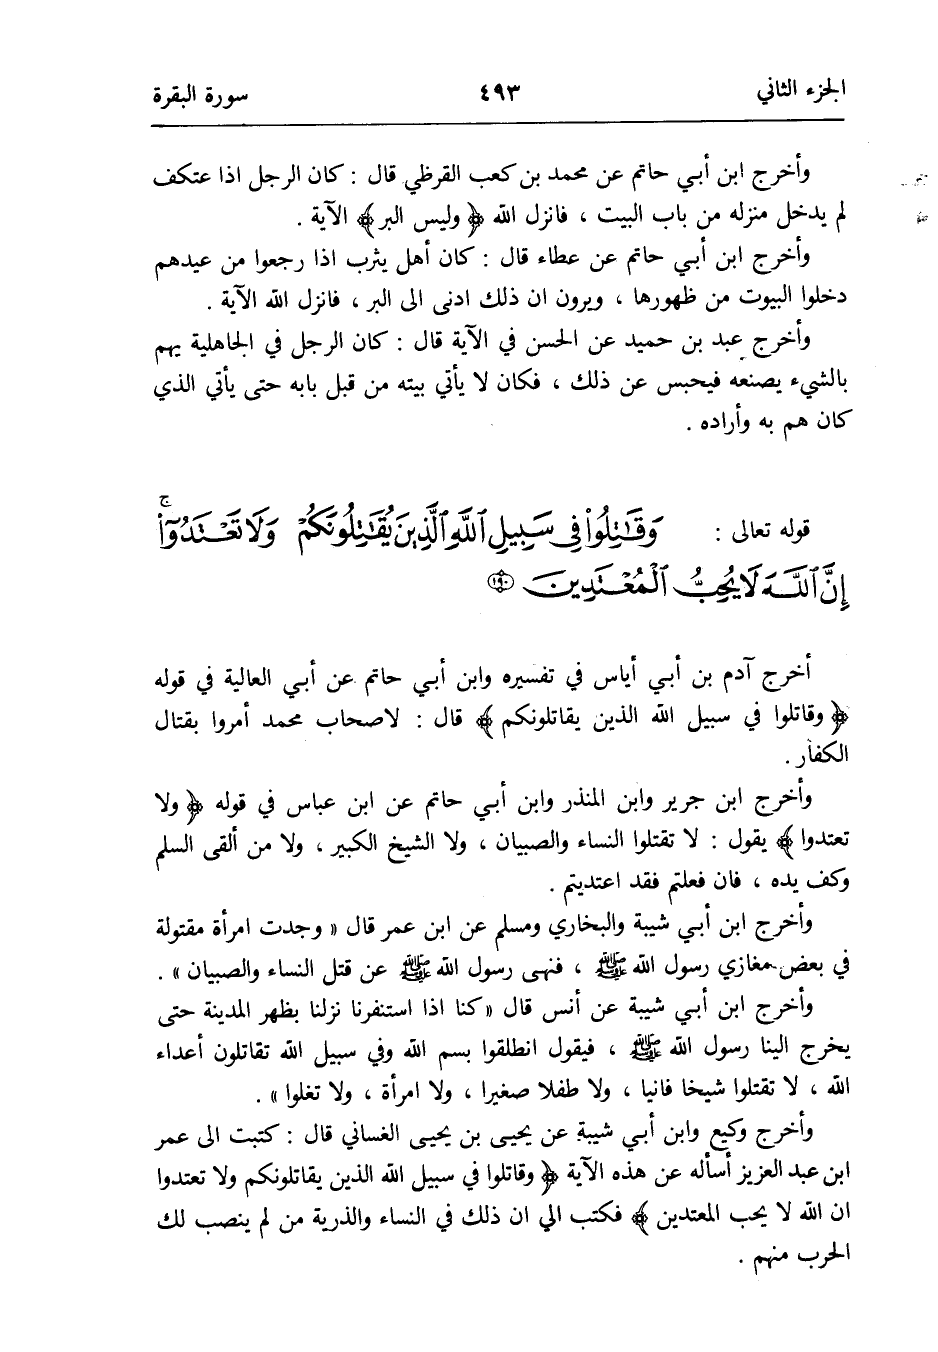 الجزء الثاني ٤٩٣ سورة البقرة
وأخرج ابن أبي حاتم عن محمد بن كعب القرظي قال : كان الرجل اذا عتكف
لم يدخل منزله من باب البيت ، فانزل الله ﴿ وليس البر ﴾ الآية .
وأخرج ابن أبي حاتم عن عطاء قال : كان أهل يثرب اذا رجعوا من عيدهم
دخلوا البيوت من ظهورها ، ويرون ان ذلك ادنى الى البر ، فانزل الله الآية .
وأخرج عبد بن حميد عن الحسن في الآية قال : كان الرجل في الجاهلية يهم
بالشيء يصنعه فيحبس عن ذلك ، فكان لا يأتي بيته من قبل بابه حتى يأتي الذي
كان هم به وأراده .
قوله تعالى : وَقَٰتِلُوا۟ فِى سَبِيلِ ٱللَّهِ ٱلَّذِينَ يُقَٰتِلُونَكُمْ وَلَا تَعْتَدُوٓا۟ۚ
إِنَّ ٱللَّهَ لَا يُحِبُّ ٱلْمُعْتَدِينَ ١٩٠
أخرج آدم بن أبي أياس في تفسيره وابن أبي حاتم عن أبي العالية في قوله
﴿ وقاتلوا في سبيل الله الذين يقاتلونكم ﴾ قال : لاصحاب محمد أمروا بقتال
الكفار .
وأخرج ابن جرير وابن المنذر وابن أبي حاتم عن ابن عباس في قوله ﴿ ولا
تعتدوا ﴾ يقول : لا تقتلوا النساء والصبيان ، ولا الشيخ الكبير ، ولا من ألقى السلم
وكف يده ، فان فعلتم فقد اعتديتم .
وأخرج ابن أبي شيبة والبخاري ومسلم عن ابن عمر قال « وجدت امرأة مقتولة
في بعض مغازي رسول الله ﷺ ، فنهى رسول الله ﷺ عن قتل النساء والصبيان » .
وأخرج ابن أبي شيبة عن أنس قال « كنا اذا استنفرنا نزلنا بظهر المدينة حتى
يخرج الينا رسول الله ﷺ ، فيقول انطلقوا بسم الله وفي سبيل الله تقاتلون أعداء
الله ، لا تقتلوا شيخا فانيا ، ولا طفلا صغيرا ، ولا امرأة ، ولا تغلوا » .
وأخرج وكيع وابن أبي شيبة عن يحيى بن يحيى الغساني قال : كتبت الى عمر
ابن عبد العزيز أسأله عن هذه الآية ﴿ وقاتلوا في سبيل الله الذين يقاتلونكم ولا تعتدوا
ان الله لا يحب المعتدين ﴾ فكتب الي ان ذلك في النساء والذرية من لم ينصب لك
الحرب منهم .